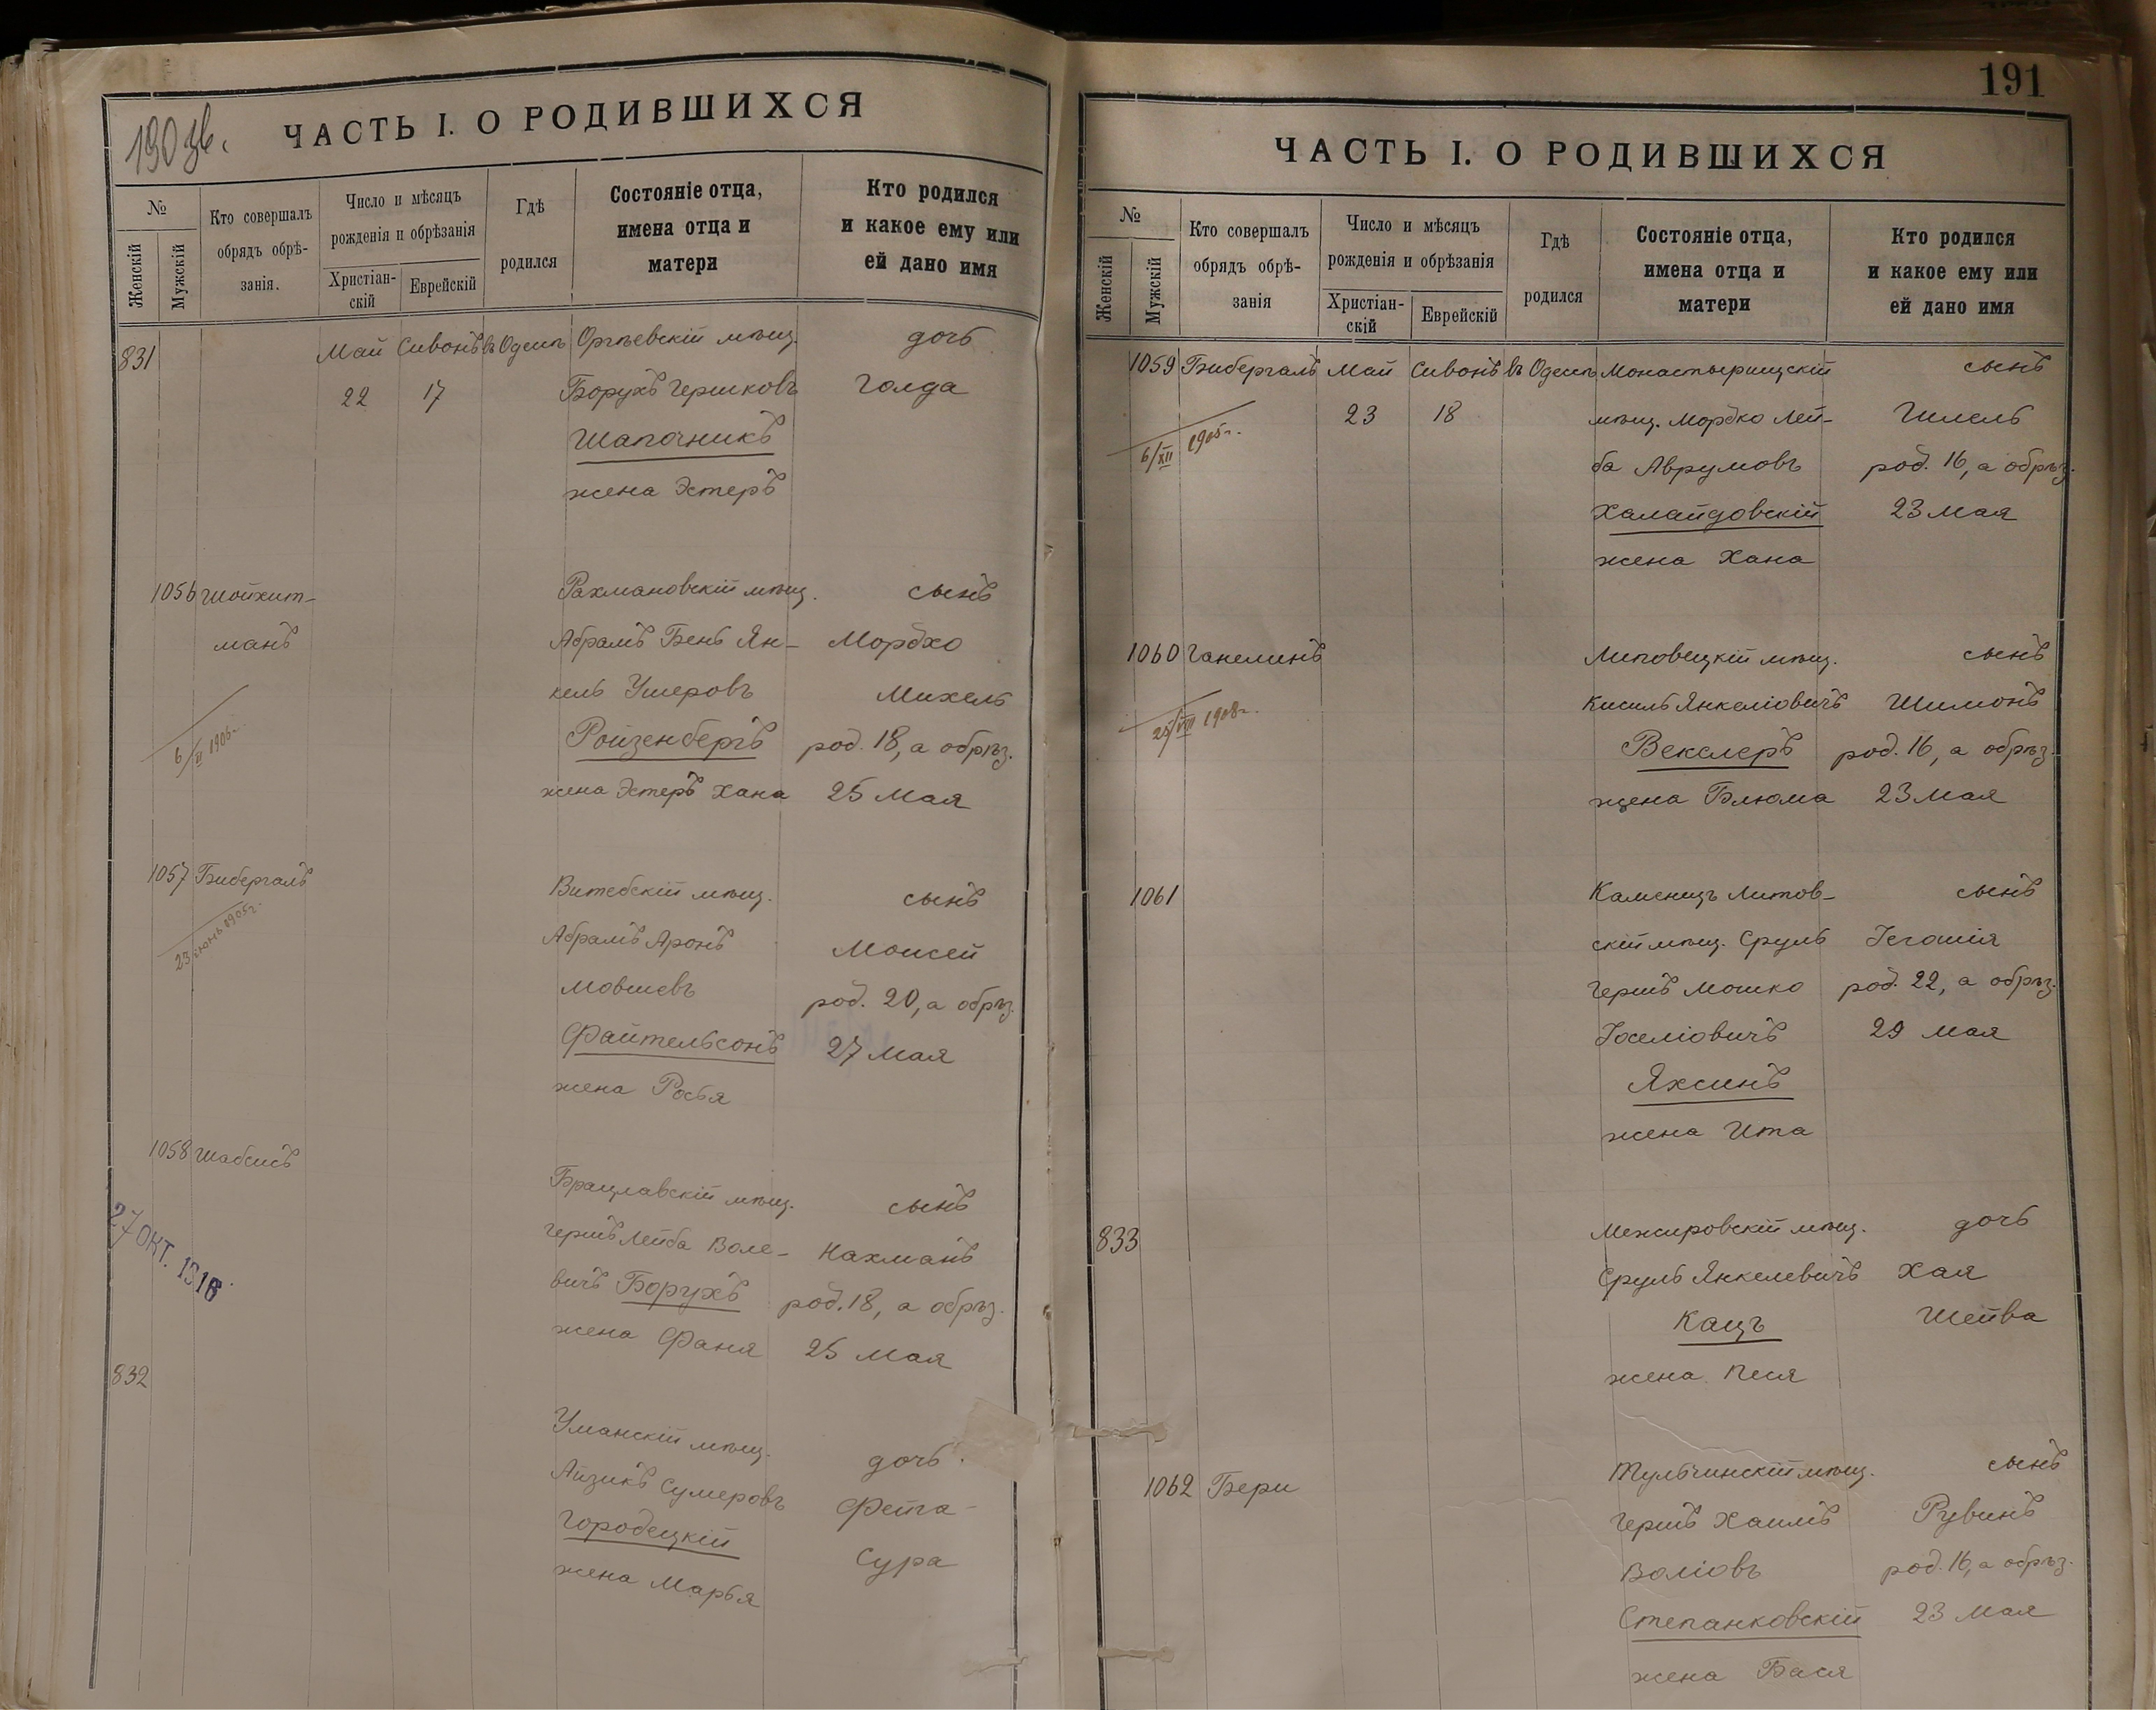 190
ЧАСТЬ I. О РОДИВШИХСЯ
№
Женскій
Мужскій
Кто совершалъ
обрядъ обрѣ-
занія.
Число и мѣсяцъ
рожденія и обрѣзанія
Христіан-
скій
Еврейскій
Гдѣ
родился
Состояніе отца,
имена отца и
матери
Кто родился
и какое ему или
ей дано имя
831 Май Сивонъ въ Одессѣ Оргѣевскій мѣщ. дочь
22 17 Борухъ Гершковъ Голда
Шапочникъ
жена Эстеръ
1056 Шойхит- Рахмановскій мѣщ. сынъ
манъ Абрамъ Бенъ Ян- Мордхо
кель Ушеровъ Михель
Ройзенбергъ род. 18, а обрѣз.
жена Эстеръ Хана 25 Мая
1057 Бибергалъ Витебскій мѣщ. сынъ
23 іюнь 1905г. Абрамъ Аронъ Моисей
Мовшевъ род. 20, а обрѣз.
Файтельсонъ 27 Мая
жена Росья
1058 Шабсисъ Брацлавскій мѣщ. сынъ
27 ОКТ. 1916 Гершъ Лейба Воле- Нахманъ
вичъ Борухъ род. 18, а обрѣз.
жена Фаня 25 Мая
832 Уманскій мѣщ. дочь
Айзикъ Сумеровъ Фейга
Городецкій Сура
жена Марья
191
ЧАСТЬ I. О РОДИВШИХСЯ
№
Женскій
Мужскій
Кто совершалъ
обрядъ обрѣ-
занія
Число и мѣсяцъ
рожденія и обрѣзанія
Христіан-
скій
Еврейскій
Гдѣ
родился
Состояніе отца,
имена отца и
матери
Кто родился
и какое ему или
ей дано имя
1059 Бибергалъ Май Сивонъ въ Одессѣ Монастырищскій сынъ
6/XII 1905г. 23 18 мѣщ. Мордко Лей- Шмель
ба Аврумовъ род. 16, а обрѣз.
Халайдовскій 23 Мая
жена Хана
1060 Ганелинъ Липовецкій мѣщ. сынъ
25/VII 1908г. Кисиль Янкеліовичъ Шимонъ
Векслеръ род. 16, а обрѣз.
жена Блюма 23 Мая
1061 Каменецъ Литов- сынъ
скій мѣщ. Сруль Іегошія
Гершъ Мошко род. 22, а обрѣз.
Іоселіовичъ 29 Мая
Яхсинъ
жена Ита
833 Межировскій мѣщ. дочь
Сруль Янкелевичъ Хая
Кацъ Шейва
жена Песя
1062 Бери Тульчинскій мѣщ. сынъ
Гершъ Хаимъ Рувинъ
Воліовъ род. 16, а обрѣз.
Степанковскій 23 Мая
жена Бася